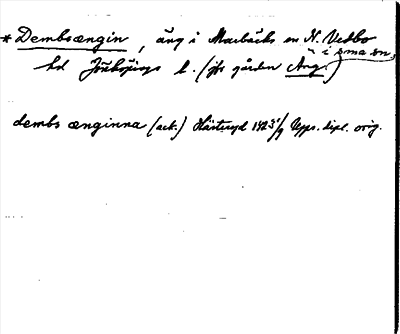 * Dembsængin, äng i Marbäcks sn N. Vedbo
hd Jönköpings l. (jfr gården Äng i sma sn.)
dembs ænginna (ack.) Hästeryd 1423 5/9 Upps. dipl. orig.